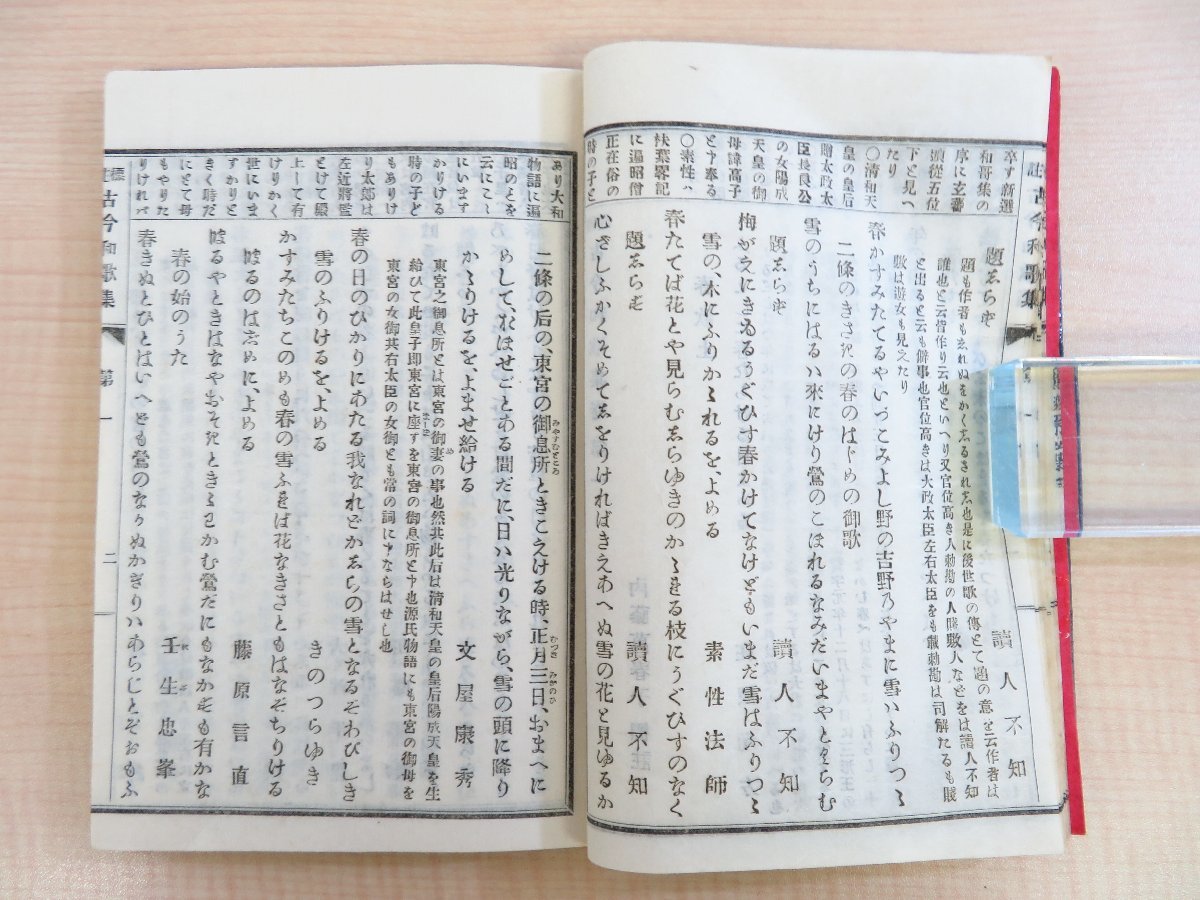 古今和歌集
卒す新選
和哥集の
序に玄蕃
頭従五位
下と見へ
たり
〇清和天
皇の皇后
贈太政太
臣長良公
の女陽成
天皇の御
母諱高子
と申奉る
〇素性ハ
扶葉畧記
に遍昭僧
正在俗の
時の子と
題志らず
讀人不知
題も作者も志れぬをかく志るされ志也是に後世歌の傳とて題の意を云作者は
誰也と云皆作り云也といへり又官位高き人勅勘の人賤敷人などをは讀人不知
と出ると云も僻事也官位高きは大政太臣左右太臣をも戴勅勘は司解たるも賤
敷は遊女も見えたり
春かすみたてるやいづこみよし野の吉野乃やまに雪ハふりつゝ
二條のきさきの春のはじめの御歌
雪のうちにはるハ來にけり鶯のこほれるなみだいまやとくらむ
題志らず
讀人不知
梅がえにきゐるうぐひす春かけてなけどもいまだ雪はふりつゝ
雪の、木にふりかゝれるを、よめる
素性法師
春たてば花とや見らむ志らゆきのかゝれる枝にうぐひすのなく
題志らず
讀人不知
心ざしふかくそめて志をりければきえあへぬ雪の花と見ゆるか
あり大和
物語に遍
昭のとを
云にこゝ
にいます
かりける
時の子ど
もありけ
り太郎は
左近將監
とけて殿
上して有
けりかく
世にいま
すかりと
きく時だ
にとて母
もやりた
りければ
二條の后の、東宮の御息所ときこえける時、正月三日、おまへに
みやすむどころ
むつき
めして、おほせごとある間だに、日ハ光りながら、雪の頭に降り
かゝりけるを、よませ給ける
文屋康秀
東宮之御息所とは東宮の御妻の事也然共此后は清和天皇の皇后陽成天皇を生
給ひて此皇子即東宮に座すを東宮の御息所と申也源氏物語にも東宮の御母を
東宮の女御共右太臣の女御とも常の詞に申ならはせし也
春の日のひかりにあたる我なれどかしらの雪となるぞわびしき
雪のふりけるを、よめる
きのつらゆき
かすみたちこのめも春の雪ふれば花なきさともはなぞちりける
はるのはじめに、よめる
藤原言直
はるやとき はなやおそきときゝわかむ鶯だにもなかずも有かな
春の始のうた
壬生忠峯
春きぬとひとはいへども鶯のなかぬかぎりハあらじとぞおもふ
標註古今和歌集
第一
二